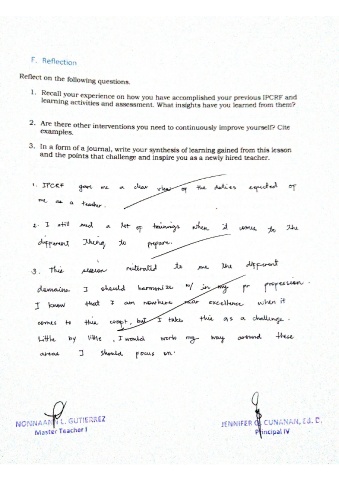 F. Reflection
Reflect on the following questions.
1. Recall your experience on how you have accomplished your previous IPCRF and
learning activities and assessment. What insights have you learned from them?
2. Are there other interventions you need to continuously improve yourself? Cite
examples.
3. In a form of a journal, write your synthesis of learning gained from this lesson
and the points that challenge and inspire you as a newly hired teacher.
1. IPCRF gave me a clear view of the duties expected of
me as a teacher.
2. I still need a lot of trainings when it comes to the
different things to prepare.
3. This session reiterated to me the different
domains I should harmonize w/ in my profession.
I know that I am nowhere near excellence when it
comes to this, but I take this as a challenge.
Little by little, I would work my way around these
areas I should focus on.
NONNAAN L. GUTIERREZ
Master Teacher I
JENNIFER G. CUNANAN, Ed. D.
Principal IV